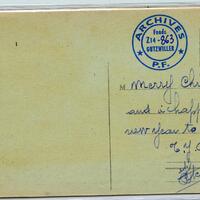 ARCHIVES
Fonds
Z14-863
GUTZWILLER
P.F.
M Merry Chr
and a happ
new year to